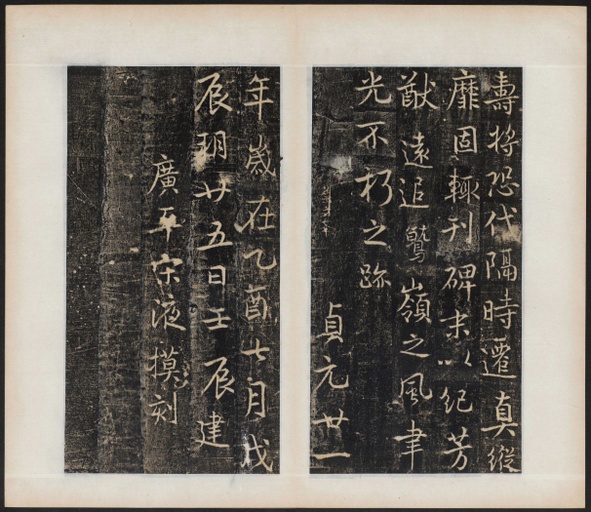 壽將恐代隔時遷真縱
靡固輒刊碑末以紀芳
猷遠追鷲嶺之風聿
光不朽之跡
貞元廿一
年歲在乙酉七月戊
辰朔廿五日壬辰建
廣平宋液摸刻